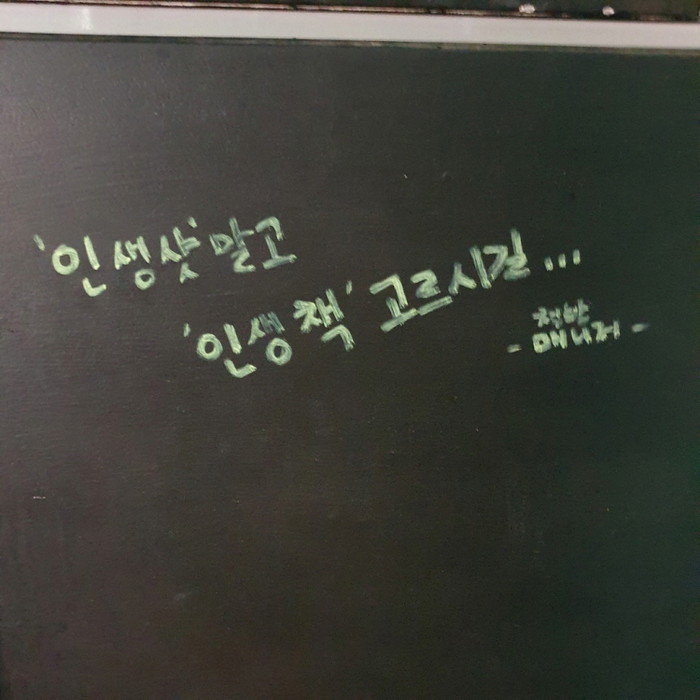 '인생샷' 말고
'인생책' 고르시길...
책방
- 매니저 -